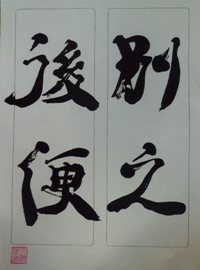 別之
後便